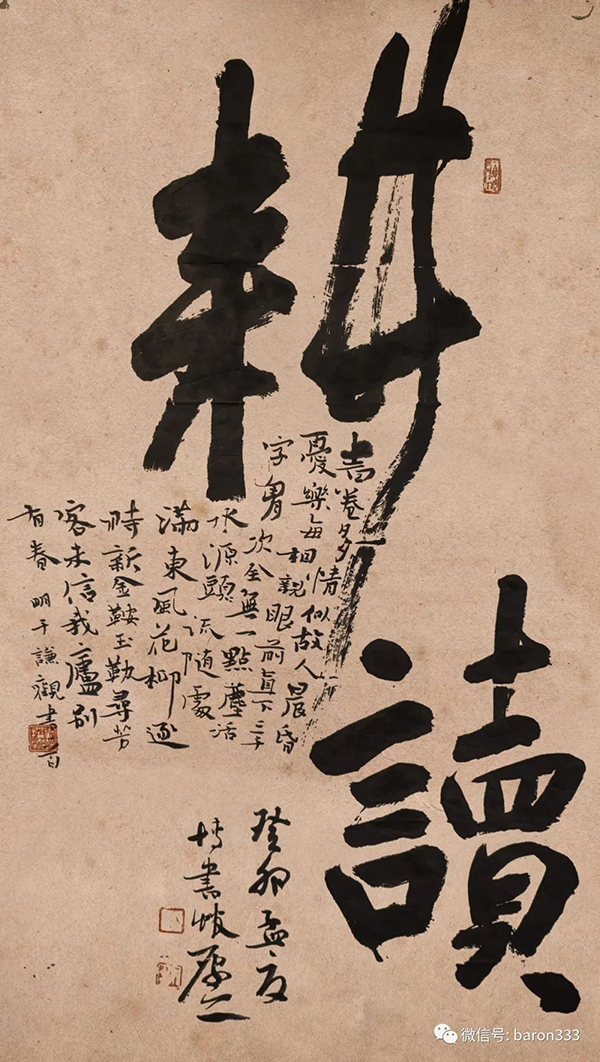 耕讀
書卷多情似故人晨昏
憂樂每相親眼前直下三千
字胷次全無一點塵活
水源頭流隨處
滿東風花柳逐
時新金鞍玉勒尋芳
客未信我廬別
有春 明于謙觀書
癸卯孟夏
微信号: baron333